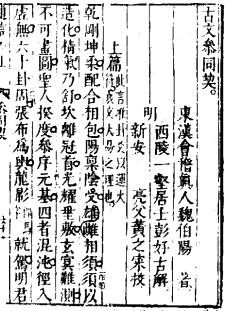 古文參同契。
東漢會稽真人魏伯陽 著
西陵一壑居士彭好古解
明
新安 亮父黃之寀校
上篇
乾剛坤柔配合相包陽稟陰受雄雌相須須以
造化精氣乃舒坎離冠首光耀垂敷玄冥難測
不可畫圖聖人揆度參序元基四者混沌徑入
虛無六十卦周張布為輿龍
就駕明君